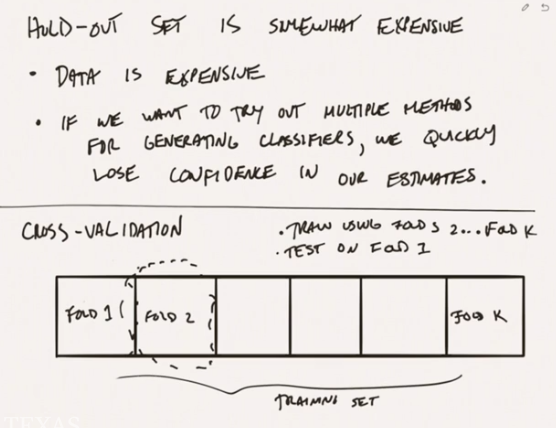 HOLD-OUT SET IS SOMEWHAT EXPENSIVE
• DATA IS EXPENSIVE
• IF WE WANT TO TRY OUT MULTIPLE METHODS
FOR GENERATING CLASSIFIERS, WE QUICKLY
LOSE CONFIDENCE IN OUR ESTIMATES.
CROSS-VALIDATION
• TRAIN USING FOLDS 2...FOLD K
• TEST ON FOLD 1
FOLD 1 FOLD 2 FOLD K
TRAINING SET
TEXAS